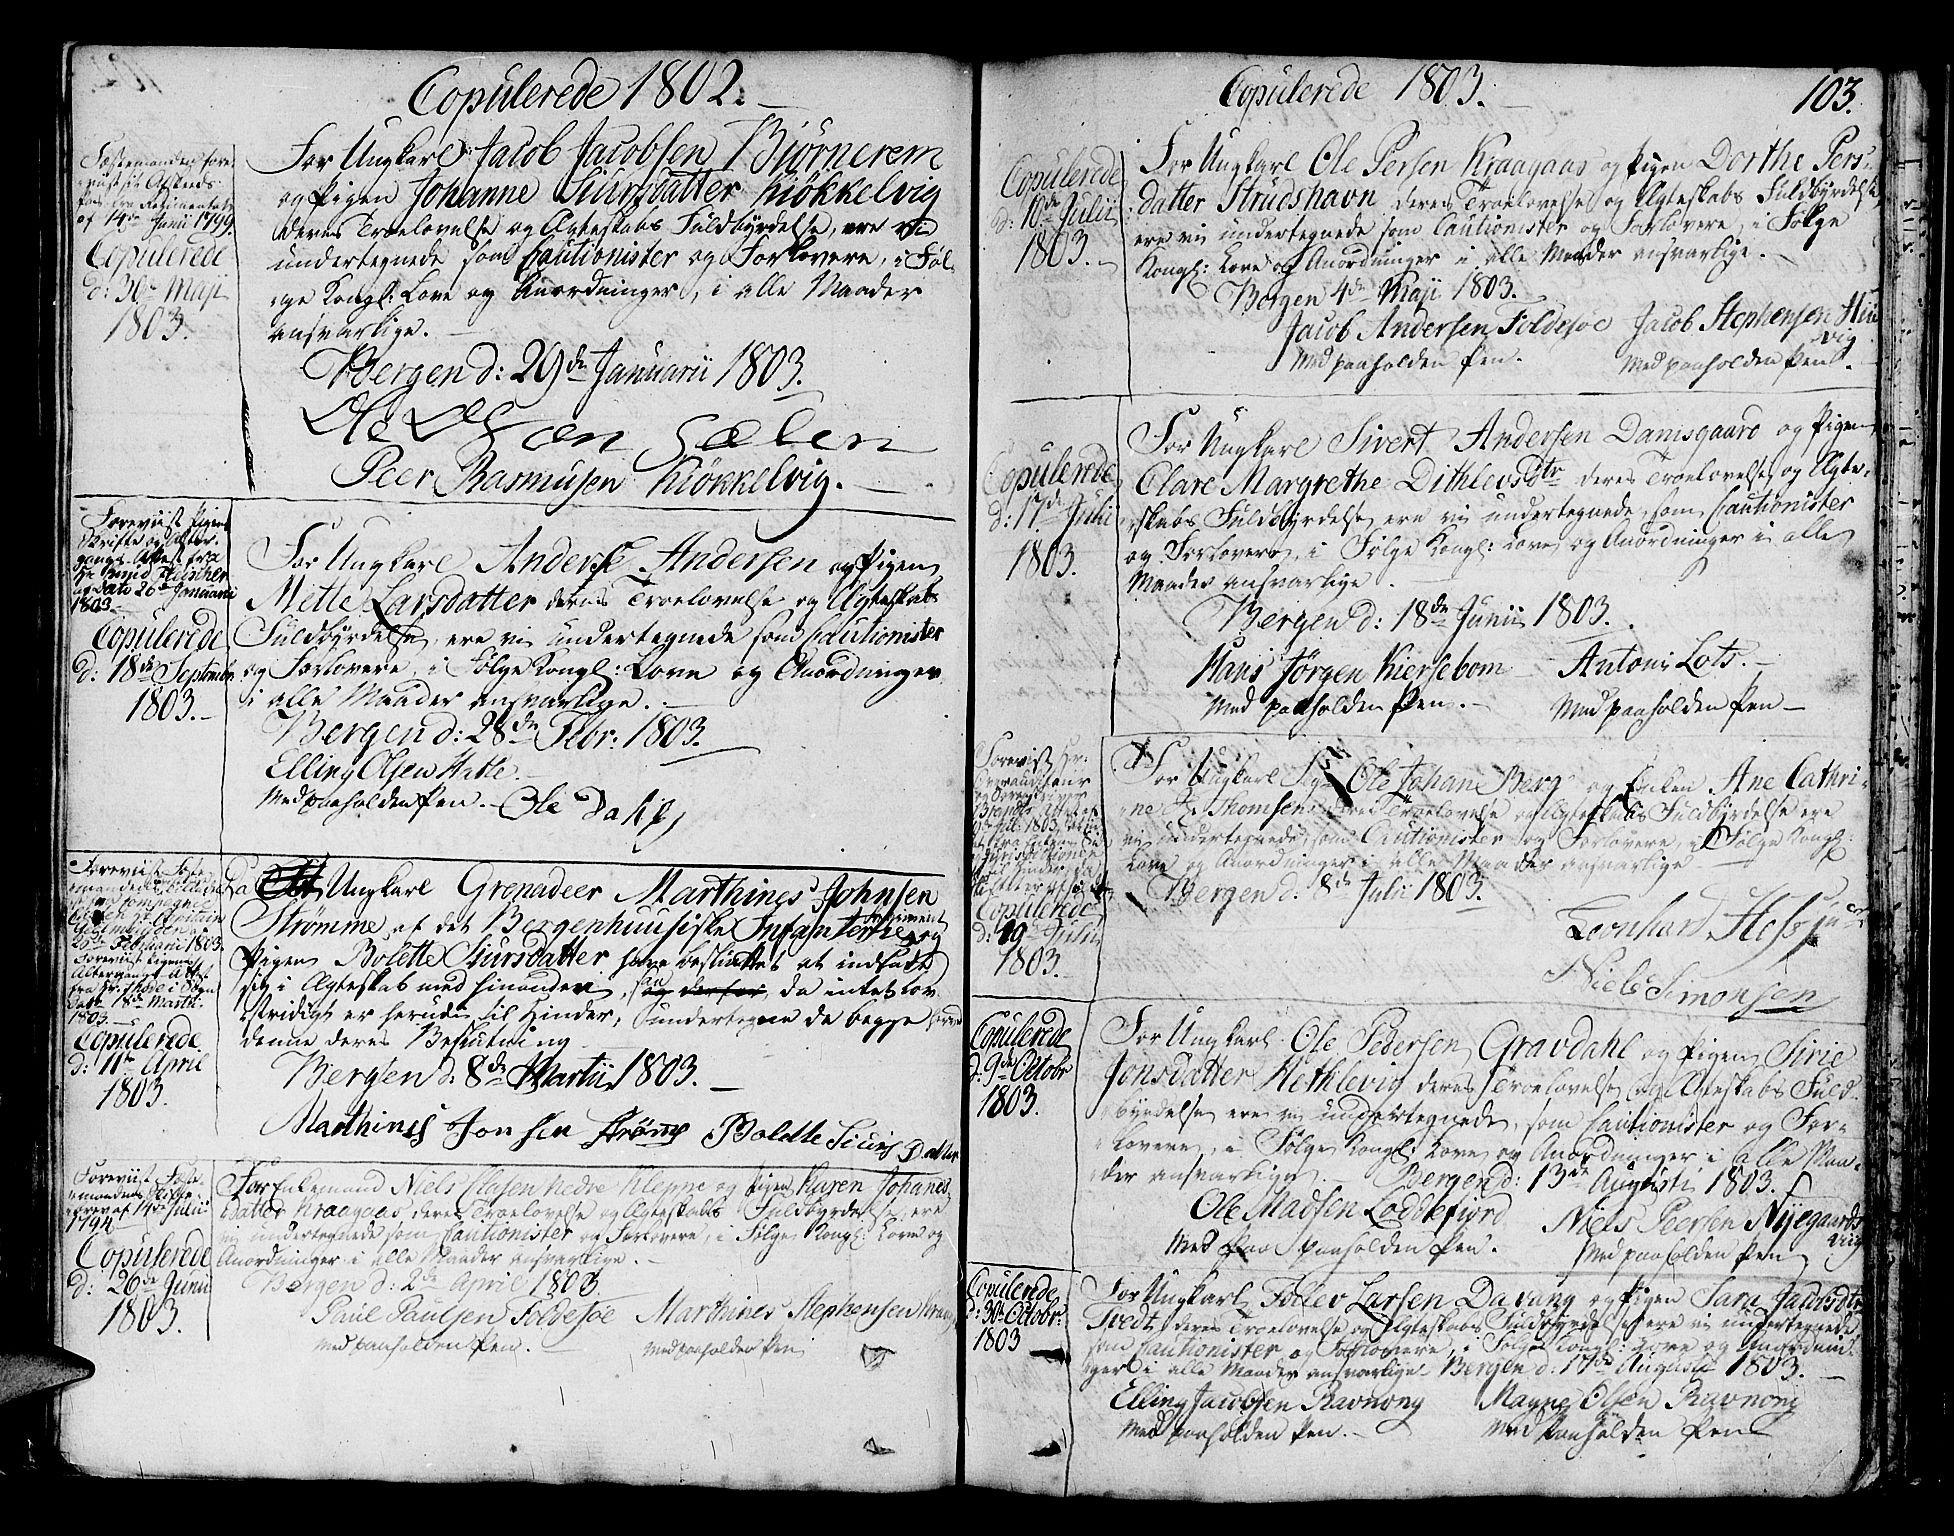 Copulerede 1802.
Fæstemanden fore-
viist sit Afskeds-
pas fra Regimentet
af 14de Junii 1799.
Copulerede
d: 30te Maji
1803.
For Ungkarl Jacob Jacobsen Biørnerem
og Pigen Johanne Siursdatter Kiøkkelvig
deres Troelovelse og Ægteskabs Fuldbyrdelse, ere vi
undertegnede som Cautionister og Forlovere, i Føl-
ge Kongl: Love og Anordninger, i alle Maader
ansvarlige.
Bergen d: 29de Januarii 1803.
Ole Olsøn Sælen
Peer Rasmusen Kiøkkelvig.
Foreviist Pigens
Skrifte og Alter-
gangs Attest fra
Hr Fleischer
af Dato 26de Januarii
1803.
Copulerede
d: 18de Septembr
1803.
For Ungkarl Anders Andersen og Pigen
Mette Larsdatter deres Troelovelse og Ægteskabs
Fuldbyrdelse, ere vi undertegnede som Cautionister
og Forlovere i Følge Kongl: Love og Anordninger
i alle Maader ansvarlige.
Bergen d: 28de Febr: 1803.
Elling Olsen Hatle
Med paaholden Pen. Ole Dahl
Foreviist Fæste-
mandens
Compagnie
Chefen Hr Capitain
den
Februarii 1803.
Foreviist Pigens
Altergangs Attest
fra Hr. i
Dato 18de Martii
1803.
Copulerede
d: 11te April
1803.
Da Ungkarl Grenadeer Marthines Johnsen
Strømme, af det Bergenhuusiske Infanterie Regiment og
Pigen Bolette Siursdatter have besluttet at indlade
sig i Ægteskab med hinanden, saa da intet lov-
stridigt er herudi til Hinder, undertegne de begge
denne deres Beslutning
Bergen d: 8de Martii 1803.
Marthines Jonsen Strøme Bolette Siurs Datter
Foreviist Fæste-
mandens Skifte-
brev af 14de Julii
1794
Copulerede
d: 26de Junii
1803.
For Enkemand Niels Clasen nedre Kleppe og Pigen Karen Johanes
datter Kraagaas, deres Troelovelse og Ægteskabs Fuldbyrdelse, ere
vi undertegnede som Cautionister og Forlovere, i Følge Kongl: Love og
Anordninger i alle Maader ansvarlige.
Bergen d: 2de April 1803.
Paul Paulsen Foldesøe Marthines Stephensen
med paaholden Pen. med paaholden Pen
Copulerede 1803.
103.
Copulerede
d: 10de Julii
1803.
For Ungkarl Ole Persen Kraagaas og Pigen Dorthe Pers-
datter Strudshavn deres Troelovelse og Ægteskabs Fuldbyrdelse,
ere vi undertegnede som Cautionister og Forlovere, i Følge
Kongl: Love og Anordninger i alle Maader ansvarlige.
Bergen 4de Maji 1803.
Jacob Andersen Foldesøe Jacob Stephensen Hil
vig
Med paaholden Pen. Med paaholden Pen.
Copulerede
d: 17de Julii
1803.
For Ungkarl Sivert Andersen Danisgaard og Pigen
Clare Margrethe Dithlevsdtr deres Troelovelse, og Ægte-
skabs Fuldbyrdelse, ere vi undertegnede, som Cautionister
og Forlovere, i Følge Kongl: Love og Anordninger i alle
Maader ansvarlige.
Bergen d: 18de Junii 1803.
Hans Jørgen Kiersebom Antoni Lots.
Med paaholden Pen. Med paaholden Pen
Foreviist
Copulerede
d: 19de Julii
1803.
For Ungkarl Sigr Ole Johan Berg og Enken Ane Cathri-
ne Thomsen deres Troelovelse og Ægteskabs Fuldbyrdelse ere
vi undertegnede, som Cautionister og Forlovere, i Følge Kongl:
Love og Anordninger i alle Maader ansvarlige
Bergen d: 8de Julii 1803.
Leonhard Hess junr
Niels Simonsen
Copulerede
d: 9de Octobr
1803.
For Ungkarl Ole Pedersen Gravdahl og Pigen Sirie
Jonsdatter Hetklevig deres Troelovelse og Ægteskabs Fuld-
byrdelse, ere vi undertegnede, som Cautionister og For-
lovere, i Følge Kongl: Love og Anordninger i alle Maa-
der ansvarlige. Bergen d: 13de Augusti 1803.
Ole Madsen Loddefiord Niels Peersen Nyegaards
viig
Med paaholden Pen. Med paaholden Pen
Copulerede
d: 30te Octobr:
1803
For Ungkarl Follev Larsen Davang og Pigen Sara Jacobsdtr
Tvedt, deres Troelovelse og Ægteskabs Fuldbyrdelse, ere vi undertegnede
som Cautionister og Forlovere, i Følge Kongl: Love og Anordnin-
ger i alle Maader ansvarlige. Bergen d: 17de Augusti 1803.
Elling Jacobsen Ravnong Magne Olsen Ravnong
Med paaholden Pen. Med Paaholden Pen